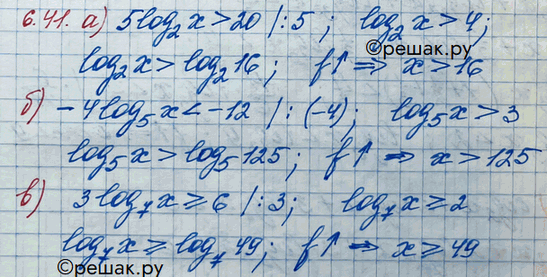 6.41. а) 5log₂x>20 |:5 ; log₂x>4;
©решак.ру
log₂x>log₂16; f↑ ⇒ x>16
б) -4log₅x<-12 |:(-4); log₅x>3
log₅x>log₅125; f↑ ⇒ x>125
в) 3log₇x≥6 |:3; log₇x≥2
log₇x≥log₇49; f↑ ⇒ x≥49
©решак.ру